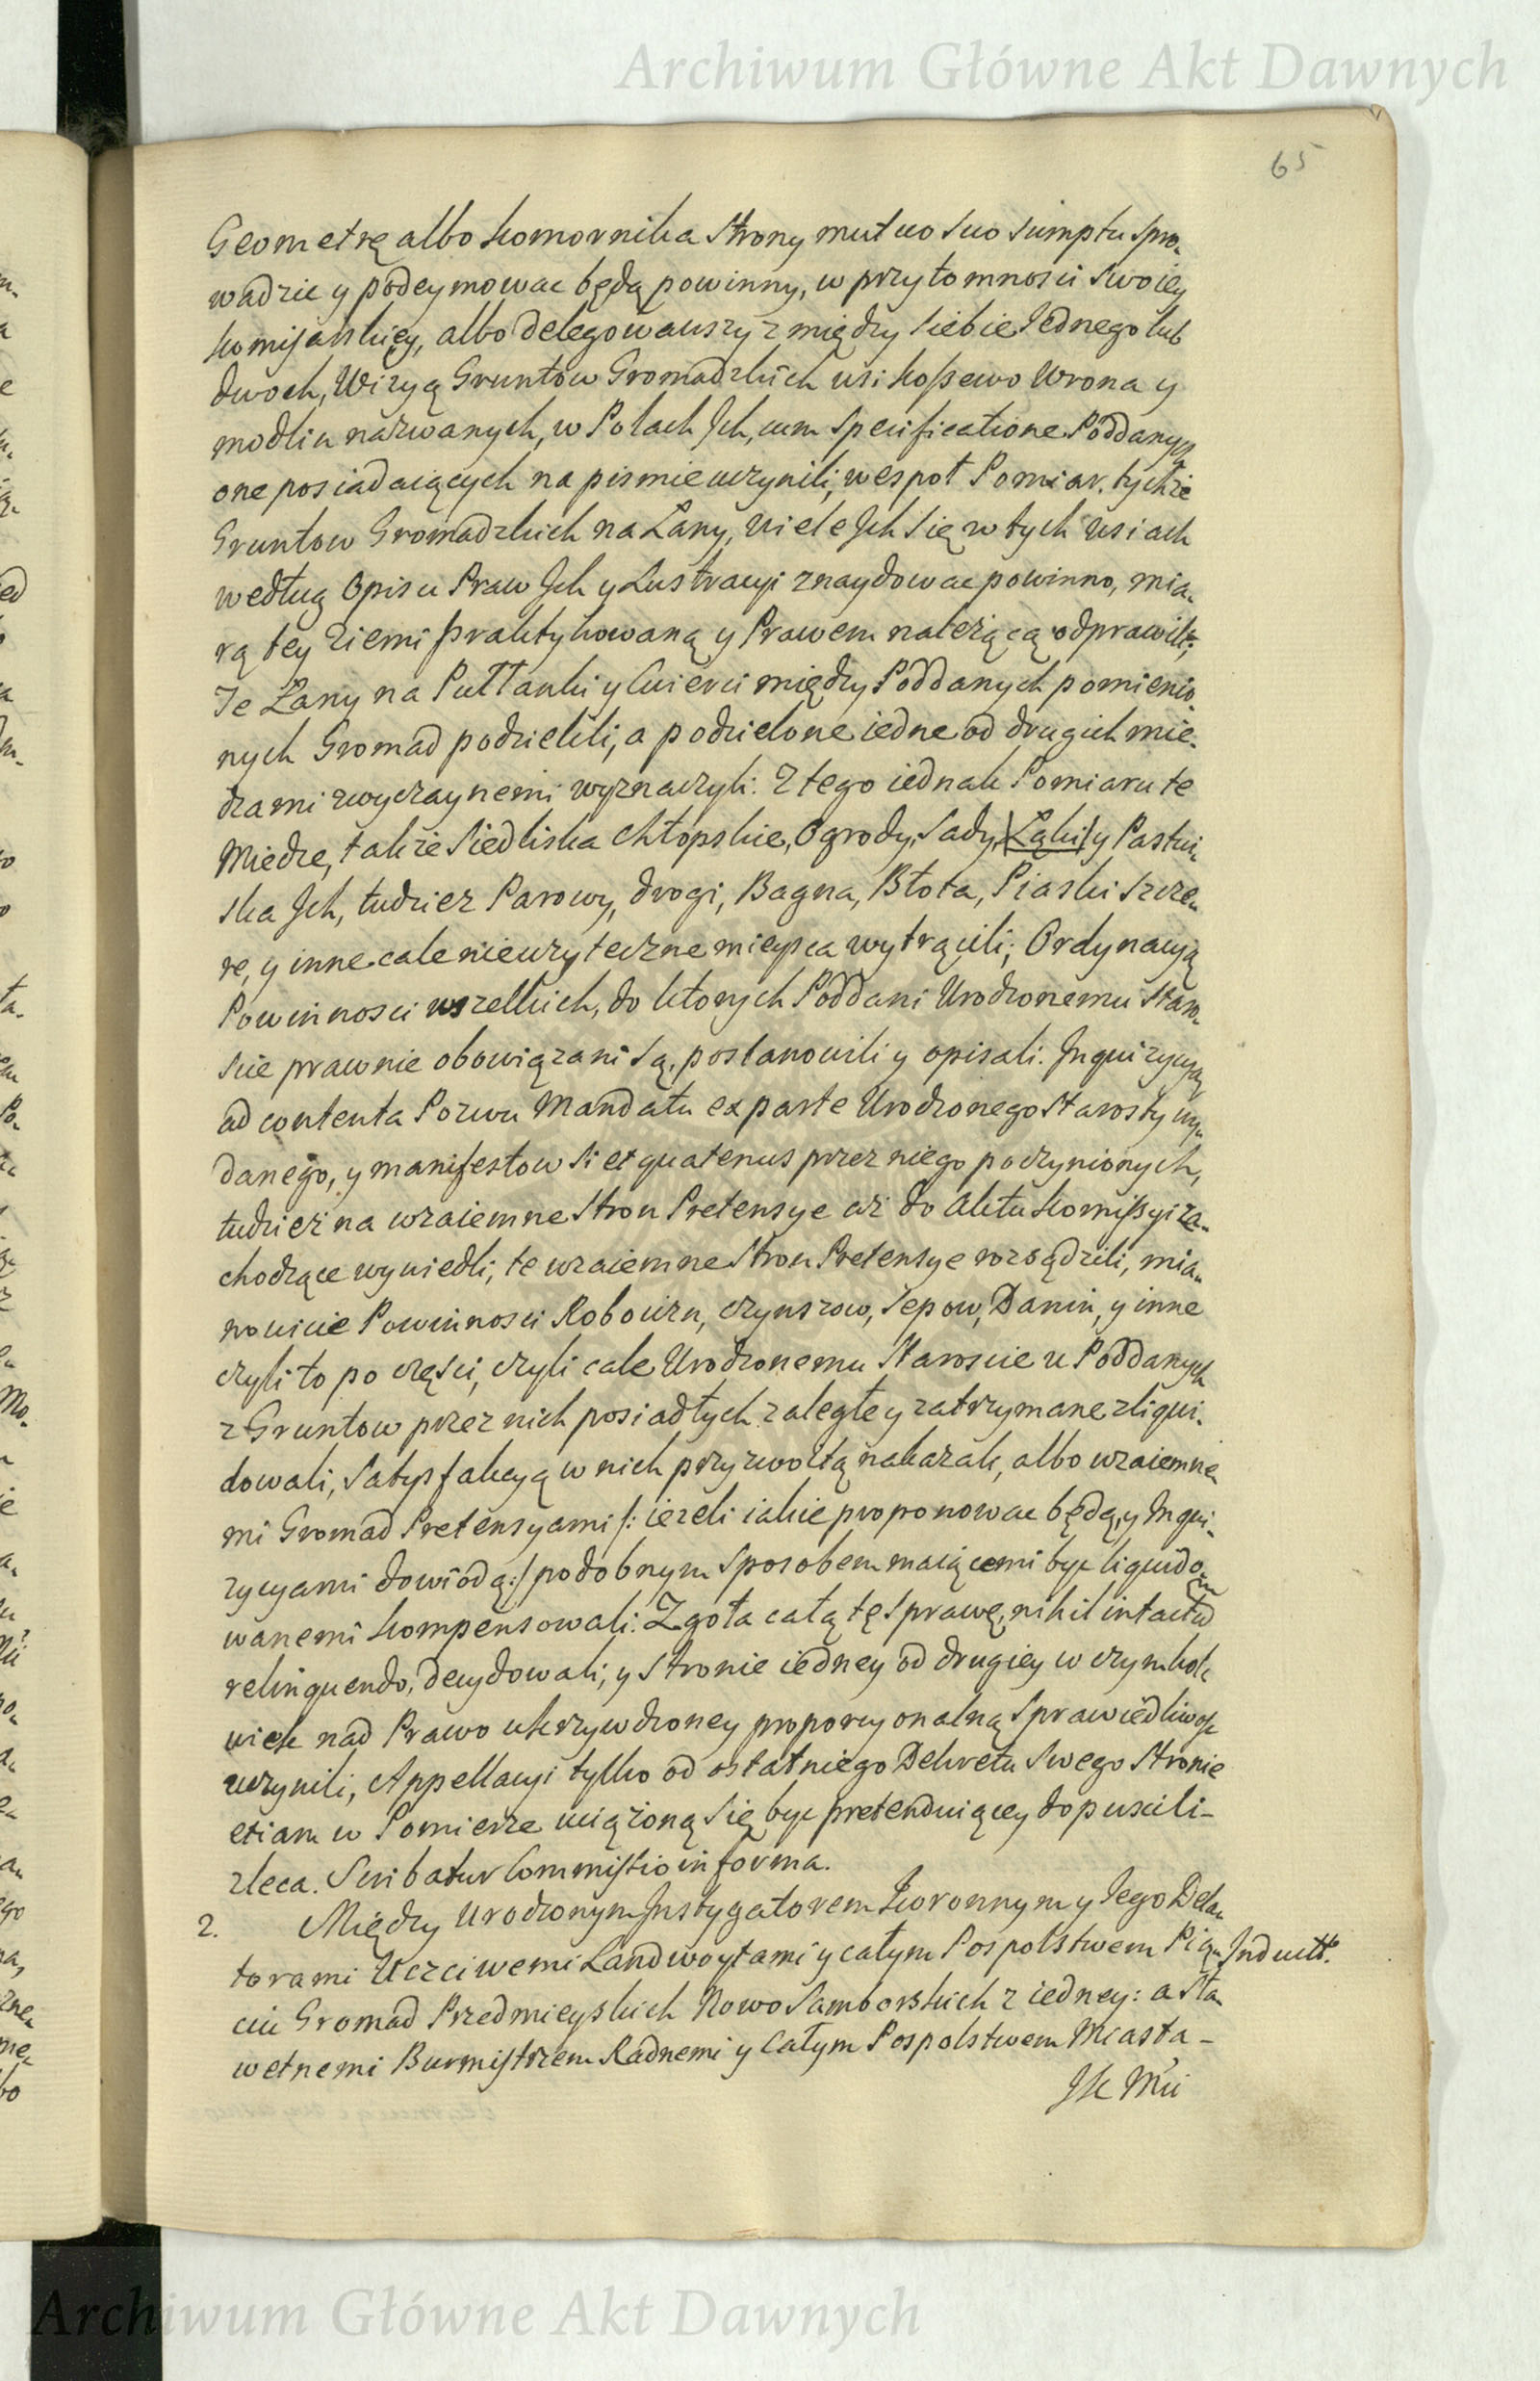 Archiwum Główne Akt Dawnych
65
Geometrę albo Komornika Strony mutuo suo sumptu spro-
wadzic y podeymowac będą powinny, w przytomnosci Swoiey
Komissarskiey, albo delegowawszy z między siebie Iednego lub
dwoch, Wizyą Gruntow Gromadzkich wsi Kossewo Wrona y
modlin nazwanych, w Polach Ich, cum Specificatione Poddanych
one posiadaiących na pismie uczynili, wespoł Pomiar tychże
Gruntow Gromadzkich na Łany, wiele Ich się w tych wsiach
według Opisu Praw Ich y Lustracyi znaydowac powinno, mia-
rą tey Ziemi praktykowaną y Prawem należącą odprawili;
Te Łany na Pułłanki y Cwierci między Poddanych pomienio-
nych Gromad podzielili, a podzielone iedne od drugich mie-
dzami zwyczaynemi wyznaczyli: Z tego iednak Pomiaru te
Miedze, także Siedliska chłopskie, Ogrody, Sady, Łąki y Pastwi-
ska Ich, tudziez Parowy, drogi, Bagna, Błota, Piaski szcze-
re, y inne cale nieużyteczne mieysca wytrącili; Ordynacyą
Powinnosci wszelkich, do ktorych Poddani Urodzonemu Staro-
scie prawnie obowiązani są, postanowili y opisali. Inquizycyą
ad contenta Pozwu Mandatu ex parte Urodzonego Starosty wy-
danego, y manifestow si et quatenus przez niego poczynionych,
tudzież na wzaiemne Stron Pretensye aż do Aktu Komissyi za-
chodzące wywiedli, te wzaiemne Stron Pretensye rozsądzili, mia-
nowicie Powinnosci Robocizn, czynszow, Sepow, Danin, y inne
czyli to po części, czyli cale Urodzonemu Staroscie u Poddanych
z Gruntow przez nich posiadłych zaległe y zatrzymane zliqui-
dowali, Satysfakcyą w nich przyzwoitą nakazali, albo wzaiemne-
mi Gromad Pretensyami /: ieżeli iakie proponowac będą, y Inqui-
zycyami dowiodą :/ podobnym Sposobem maiącemi byc liquido-
wanemi kompensowali: Zgoła całą tę sprawę, nihil intactum
relinquendo, decydowali, y Stronie iedney od drugiey w czymkol-
wiek nad Prawo ukrzywdzoney proporcyonalną Sprawiedliwosc
uczynili, Appellacyi tylko od ostatniego Dekretu Swego Stronie
etiam w Pomierze uciążoną się byc pretenduiącey dopuscili-
zleca. Scribatur Commissio in forma.
2. Między Urodzonym Instygatorem Koronnym y Iego Dela-
torami Uczciwemi Landwoytami y całym Pospolstwem Pią- Induttˢ.
ciu Gromad Przedmieyskich Nowo Samborskich z iedney: a Sta-
wetnemi Burmistrzem Radnemi y Całym Pospolstwem Miasta-
JK Mci
Archiwum Główne Akt Dawnych